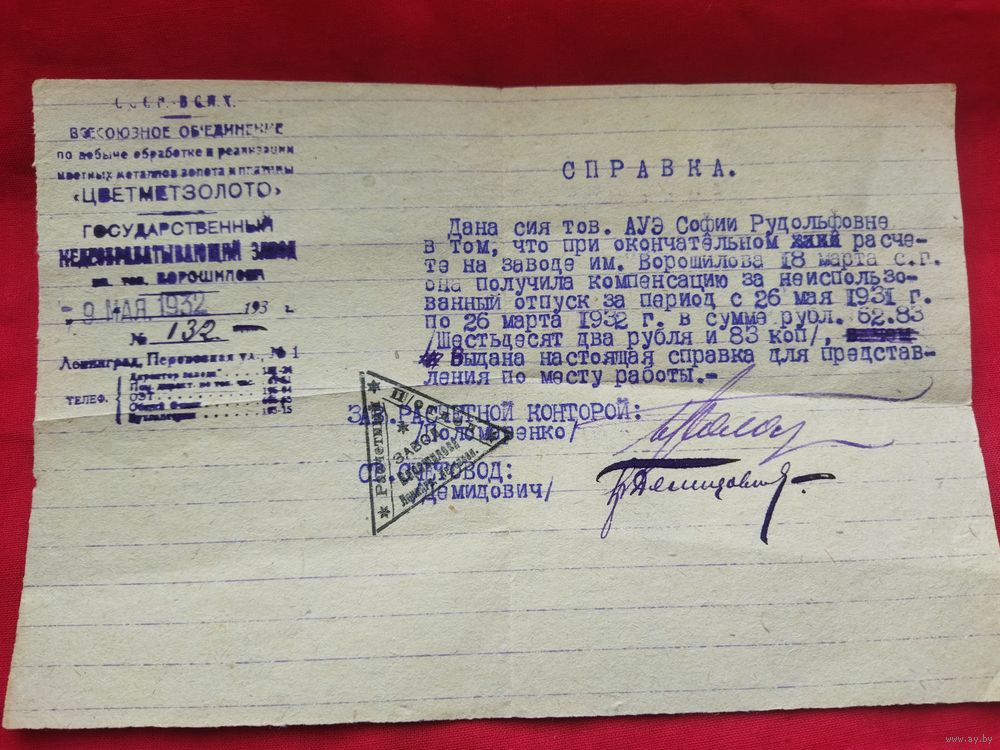 СССР-ВСНХ
ВСЕСОЮЗНОЕ ОБ'ЕДИНЕНИЕ
по добыче обработке и реализации
цветных металлов золота и платины
«ЦВЕТМЕТЗОЛОТО»
ГОСУДАРСТВЕННЫЙ
МЕДЕОБРАБАТЫВАЮЩИЙ ЗАВОД
им. тов. ВОРОШИЛОВА
9 МАЯ 1932 193 г.
№ 132
Ленинград, Перевозная ул., № 1
ТЕЛЕФ.
Директор завода
Пом. директ. по тех. части
ОЭТ
Общий
Бухгалтерия
СПРАВКА.
Дана сия тов. АУЭ Софии Рудольфовне
в том, что при окончательном расче-
те на заводе им. Ворошилова 18 марта с.г.
она получила компенсацию за неиспользо-
ванный отпуск за период с 26 мая 1931 г.
по 26 марта 1932 г. в сумме рубл. 62.83
/Шестьдесят два рубля и 83 коп/,
Выдана настоящая справка для представ-
ления по месту работы.-
ЗАВ РАСЧЕТНОЙ КОНТОРОЙ:
/Поломаренко/
СТ.СЧЕТОВОД:
Демидович/
Расчетный
ЗАВОД
Ворошилова
Демидович
www.ay.by